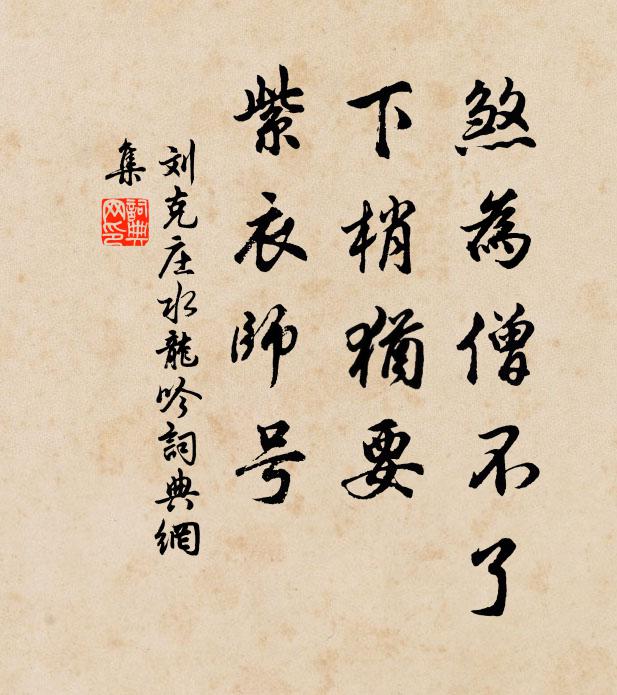 煞為僧不了
下梢猶要
紫衣師号
刘克庄水龍吟詞典網
集
詞典網印